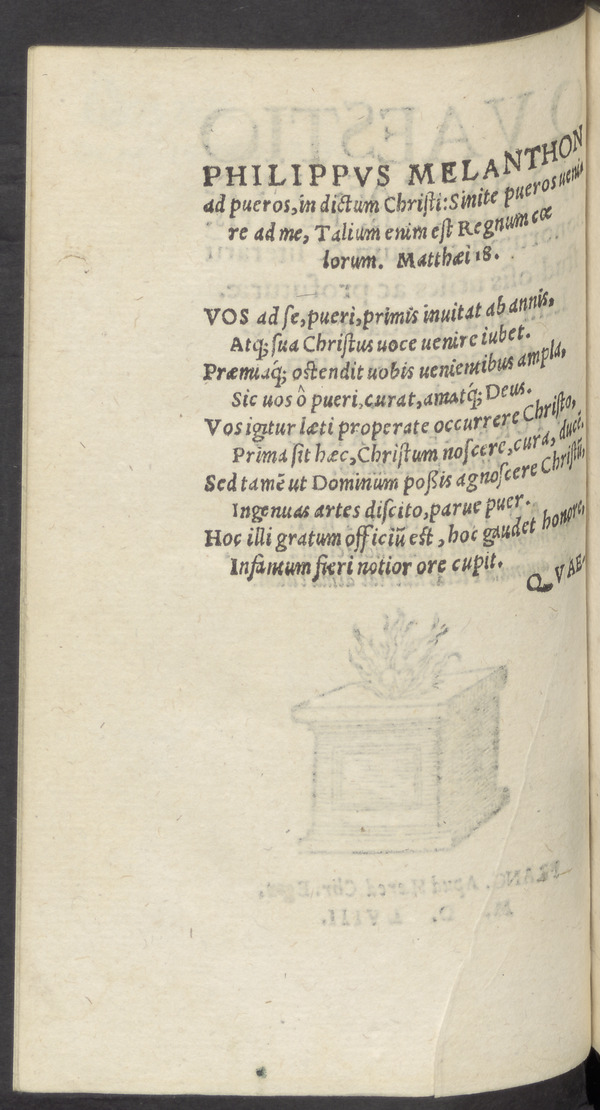 PHILIPPVS MELANTHON
ad pueros, in dictum Christi: Sinite pueros ueni
re ad me, Talium enim est Regnum cœ
lorum. Matthæi 18.
VOS ad se, pueri, primis inuitat ab annis,
Atq; sua Christus uoce uenire iubet.
Præmiaq́; ostendit uobis uenientibus ampla,
Sic uos ô pueri, curat, amatq́; Deus.
Vos igitur læti properate occurrere Christo,
Prima sit hæc, Christum noscere, cura, ducē.
Sed tamē ut Dominum poßis agnoscere Christū,
Ingenuas artes discito, parue puer.
Hoc illi gratum officiū est, hoc gaudet honore,
Infantum fieri notior ore cupit.
QVAE-
FRANC. Apud Hæred. Chr. Egen.
M. D. LVIII.